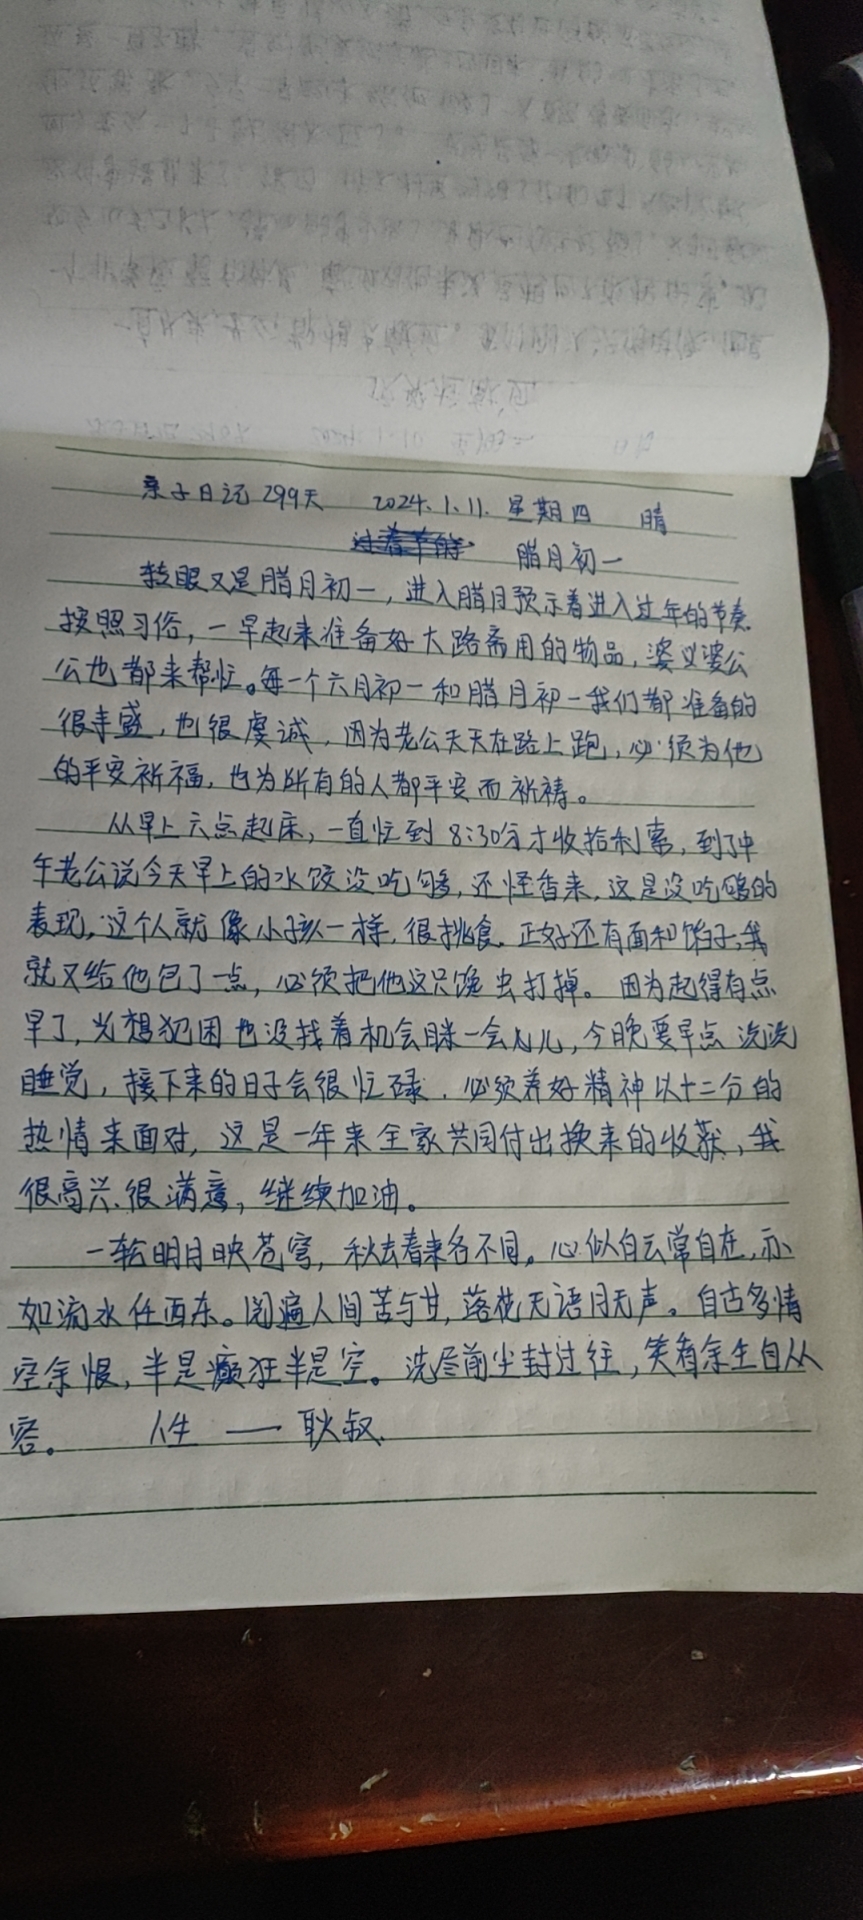 亲子日记299天 2024.1.11.星期四 晴
腊月初一
转眼又是腊月初一，进入腊月预示着进入过年的节奏.
按照习俗，一早起来准备好大路斋用的物品，婆婆公
公也都来帮忙。每一个六月初一和腊月初一我们都准备的
很丰盛，也很虔诚，因为老公天天在路上跑，必须为他
的平安祈福，也为所有的人都平安而祈祷。
从早上六点起床，一直忙到8:30分才收拾利索，到了中
午老公说今天早上的水饺没吃够，还怪香来，这是没吃够的
表现，这个人就像小孩一样，很挑食.正好还有面和馅子，我
就又给他包了一点，必须把他这只馋虫打掉。因为起得有点
早了，光想犯困也没找着机会眯一会儿，今晚要早点洗洗
睡觉，接下来的日子会很忙碌.必须养好精神以十二分的
热情来面对，这是一年来全家共同付出换来的收获，我
很高兴、很满意，继续加油。
一轮明月映苍穹，秋去春来各不同。心似白云常自在，亦
如流水任西东。阅遍人间苦与甘，落花无语月无声。自古多情
空余恨，半是癫狂半是空。洗尽前尘封过往，笑看余生自从
容。 人生 —— 耿叔.